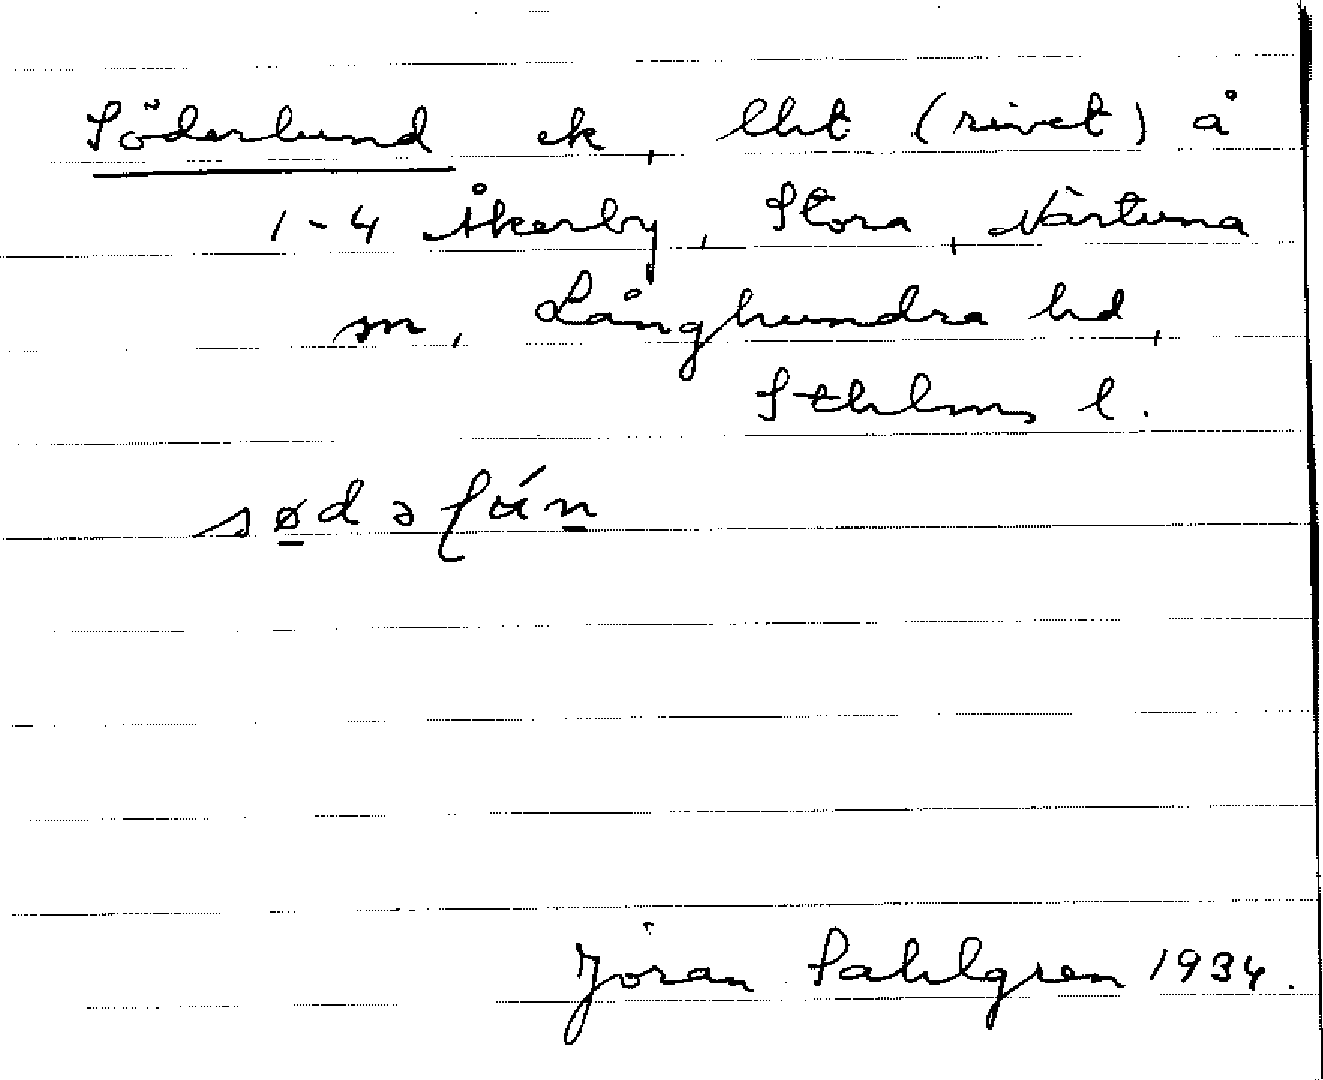 Söderlund ek, lht (rivet) å
1-4 Åkerby, Stora, Närtuna
sn, Långhundra hd,
Sthlms l.
Jöran Sahlgren 1934.